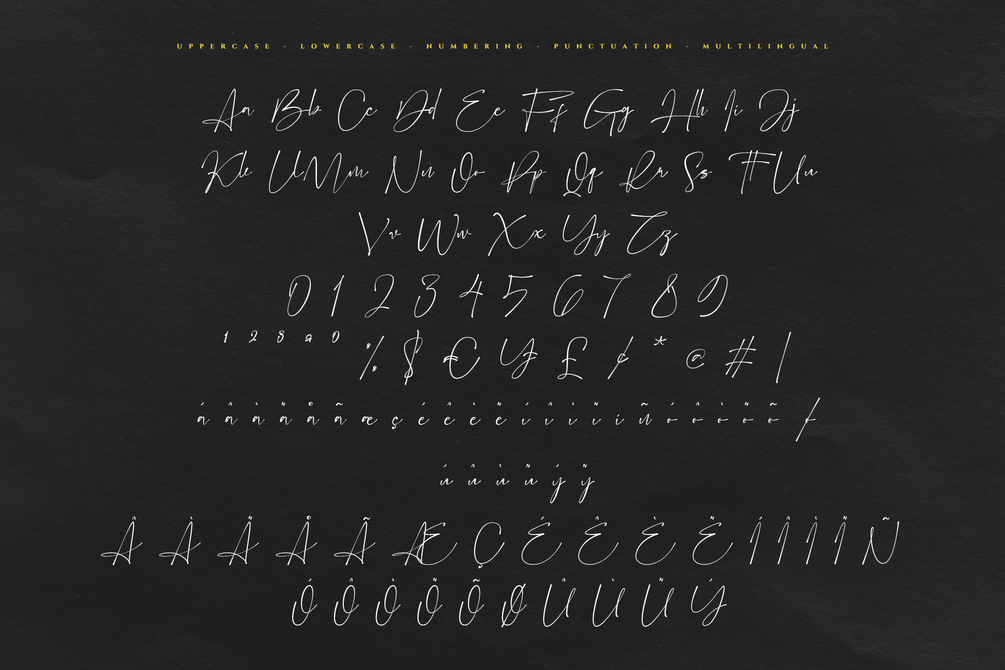 UPPERCASE - LOWERCASE - NUMBERING - PUNCTUATION - MULTILINGUAL
Aa Bb Cc Dd Ee Ff Gg Hh Ii Jj
Kk Ll Mm Nn Oo Pp Qq Rr Ss Tt Uu
Vv Ww Xx Yy Zz
0 1 2 3 4 5 6 7 8 9
1 2 3 a 0 % $ € ¥ £ ¢ * @ # |
á â à ä å ã æ ç é ê è ë í î ì ï i ñ ó ô ò ö õ ø
ú û ù ü ý ÿ
 À Ä Å Ã Æ Ç É Ê È Ë Í Î Ì Ï Ñ
Ó Ô Ò Ö Õ Ø Û Ù Ü Ý